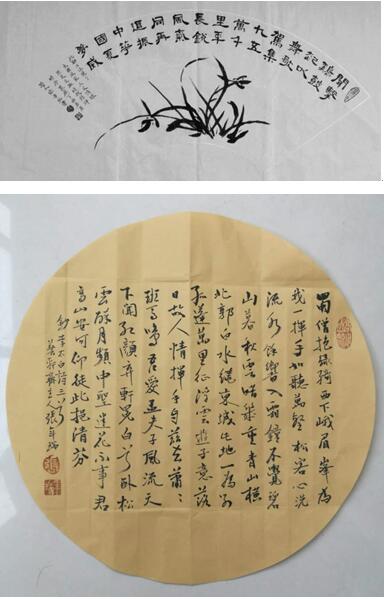 聞鷄起舞駕九萬里長風同道中國夢
擊鼓吹歌集五千年銳氣再振華夏威
蜀僧抱綠綺西下峨眉峰為
我一揮手如聽萬壑松客心洗
流水餘響入霜鐘不覺碧
山暮秋雲暗幾重青山橫
北郭白水繞東城此地一為別
孤蓬萬里征浮雲遊子意落
日故人情揮手自茲去蕭蕭
班馬鳴吾愛孟夫子風流天
下聞紅顏弃軒冕白首臥松
雲醉月頻中聖迷花不事君
高山安可仰徒此挹清芬
太白詩三首
齋主人張年